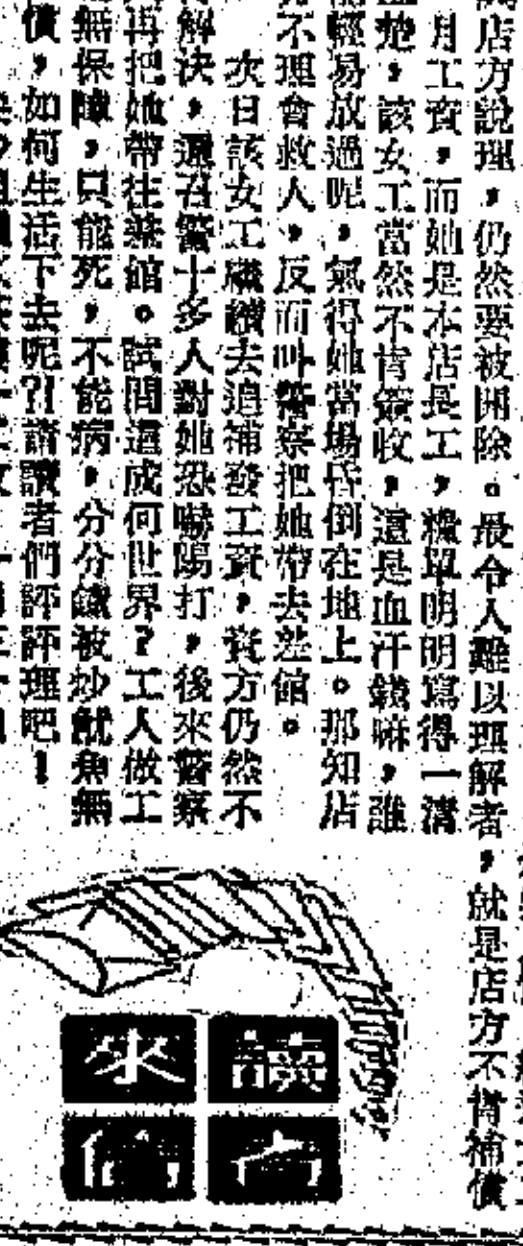 店方說理，仍然要被開除。最令人難以理解者，就是店方不肯補償
月工資，而她是本店長工，糧單明明寫得一清
楚，該女工當然不肯簽收，這是血汗錢嘛，誰
輕易放過呢，氣得她當場昏倒在地上。那知店
不理會救人，反而叫警察把她帶去差館。
次日該女工繼續去追補發工資，資方仍然不
解決，還召警十多人對她恐嚇陽打，後來警察
再把她帶往差館。試問這成何世界？工人做工
無保障，只能死，不能病，分分鐘被炒魷魚無
償，如何生活下去呢?!請讀者們評評理吧！
讀者
來信